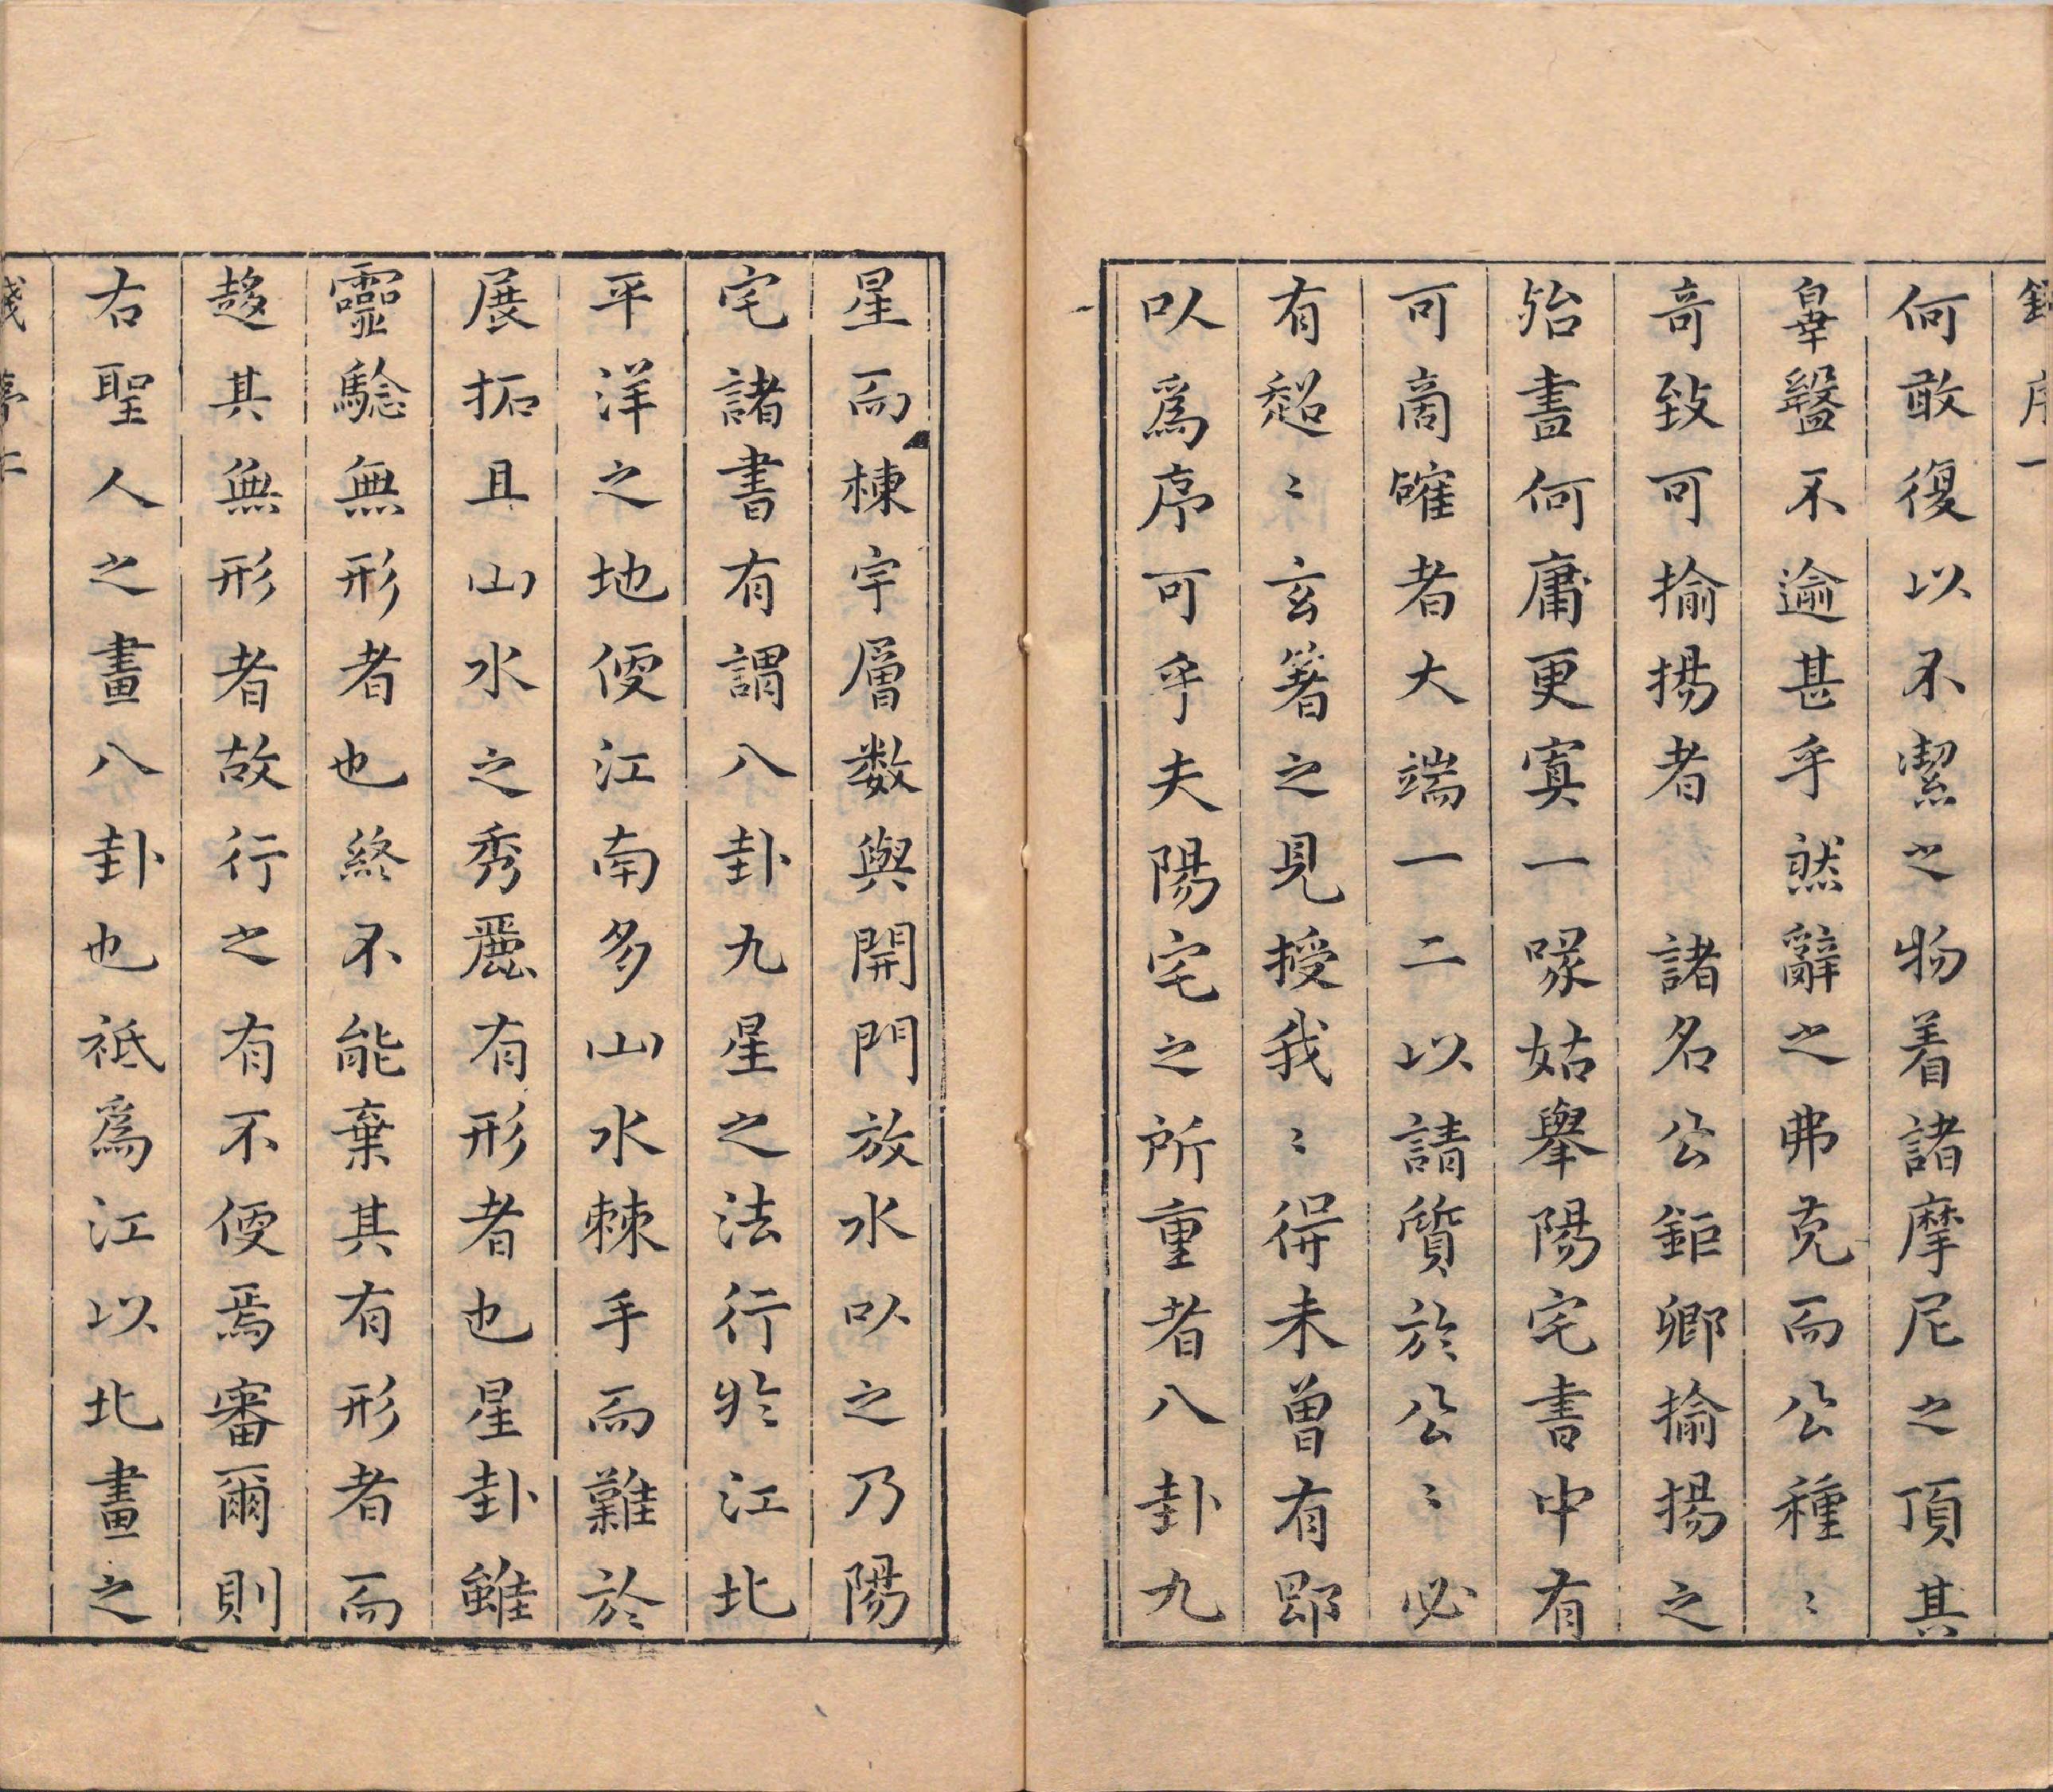 何敢復以不潔之物着諸摩尼之頂其
辠毉不逾甚乎然辭之弗克而公種〻
奇致可揄揚者　諸名公鉅卿揄揚之
殆盡何庸更寘一喙姑舉陽宅書中有
可商確者大端一二以請質於公〻必
有超〻玄著之見授我〻得未曾有即
以爲序可乎夫陽宅之所重者八卦九
星而棟宇層数與開門放水以之乃陽
宅諸書有謂八卦九星之法行於江北
平洋之地便江南多山水棘手而難於
展拓且山水之秀麗有形者也星卦雖
靈驗無形者也終不能棄其有形者而
趍其無形者故行之有不便焉審爾則
右聖人之畫八卦也祇爲江以北畫之